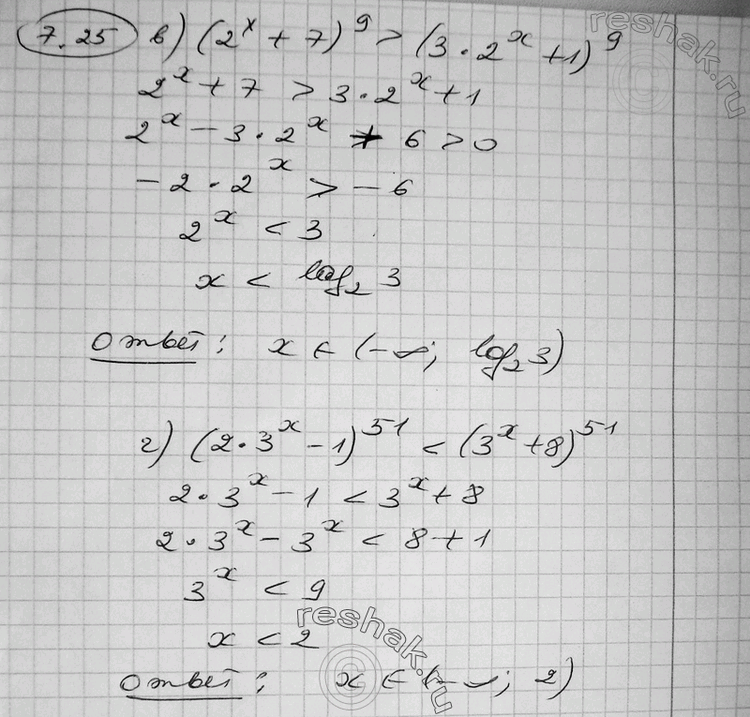 7.25 в) (2^x + 7)^9 > (3 · 2^x + 1)^9
2^x + 7 > 3 · 2^x + 1
2^x - 3 · 2^x + 6 > 0
- 2 · 2^x > - 6
2^x < 3
x < log_2 3
Ответ: x ∈ (-∞; log_2 3)
г) (2 · 3^x - 1)^51 < (3^x + 8)^51
2 · 3^x - 1 < 3^x + 8
2 · 3^x - 3^x < 8 + 1
3^x < 9
x < 2
Ответ: x ∈ (-∞; 2)
reshak.ru
reshak.ru